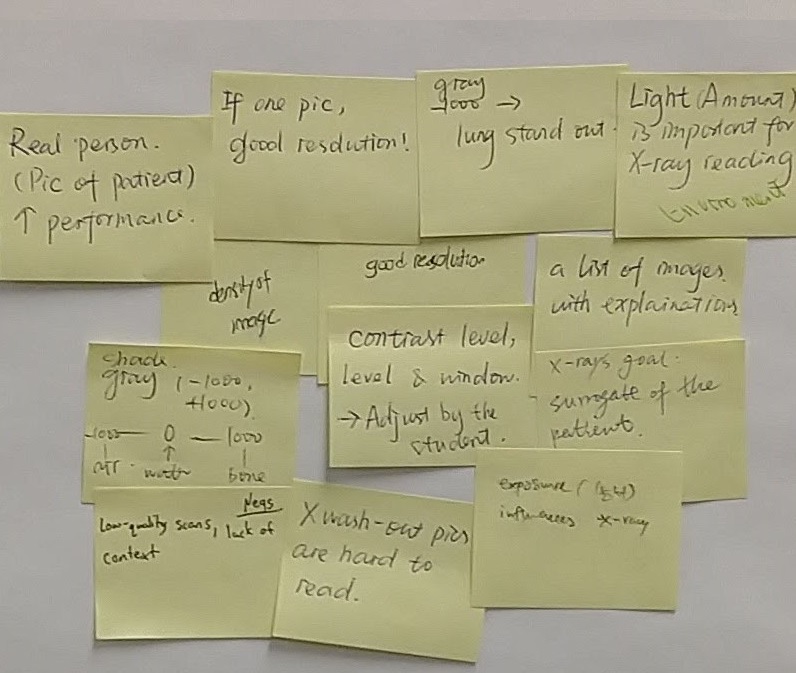 Real person.
(Pic of patient)
↑ performance.
If one pic,
good resolution!
gray
1000 →
lung stand out.
Light (Amount)
is important for
X-ray reading
Environment
density of
image
good resolution
a list of images
with explainations
shade
gray (-1000,
+1000).
-1000 — 0 — 1000
air water bone
contrast level,
level & window.
→ Adjust by the
student.
X-rays goal:
surrogate of the
patient.
Negs
Low-quality scans, lack of
context
X wash-out pics
are hard to
read.
exposure (
influences x-ray